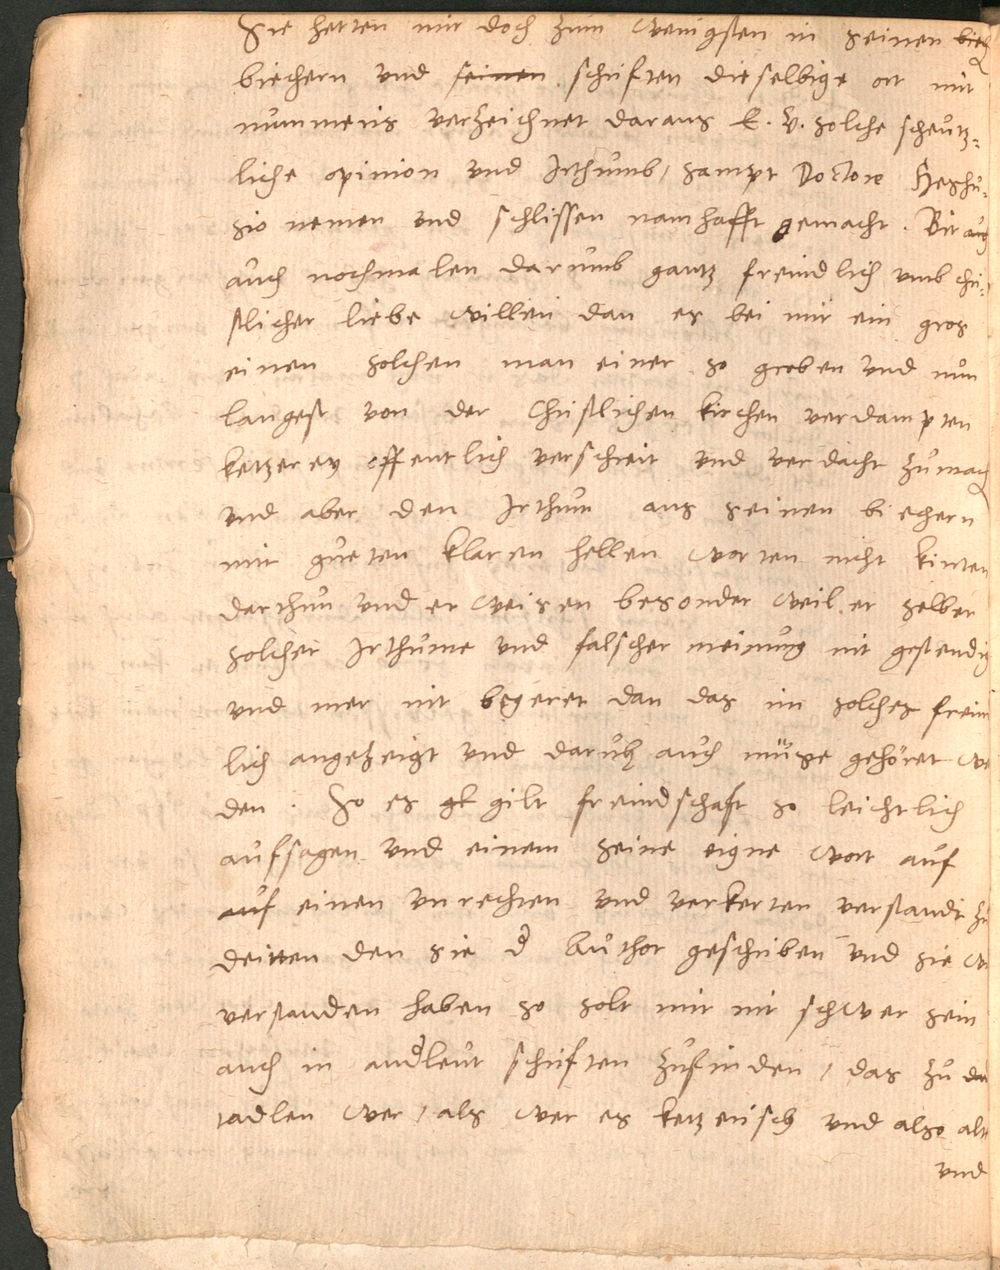 Sie hetten mir doch zum wenigsten in seinen biech
biechern und seinen schriften dieselbige ort mit
nummeris verzeichnet daraus E. V. solche scheutz-
liche opinion und Irthumb / sampt Doctore Heshu-
sio nemen und schlissen namhafft gemacht. Bit auch
auch nochmalen darumb gantz freindlich umb chri-
stlicher liebe willen dan es bei mir ein gros
einen solchen man einer so groben und nun
langest von der Christlichen kirchen verdampten
ketzerey offentlich verschreit und verdacht zumach
und aber den Irthum aus seinen biechern
mit gueten klaren hellen worten nicht kinten
darthun und erweisen besonder weil er selber
solcher Irthume und falscher meinung nit gestendig
und mer nit begeret dan das im solches frein
lich angezeigt und darub auch müge gehöret we
den. So es gl gilt freindschaft so leichtlich
aufsagen und einem seine eigne wort auf
auf einen unrechten und verkerten verstandt zu
deitten den sie d Author geschriben und sie
verstanden haben so solt mir nit schwer sein
auch in andleut schriften zufinden / das zu
tadlen wer / als wer es ketzerisch und also alt
und